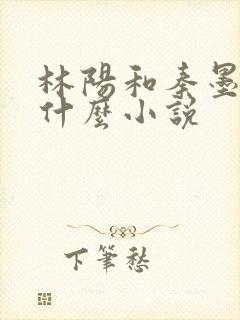 林陽和秦墨
什麼小說
下筆愁